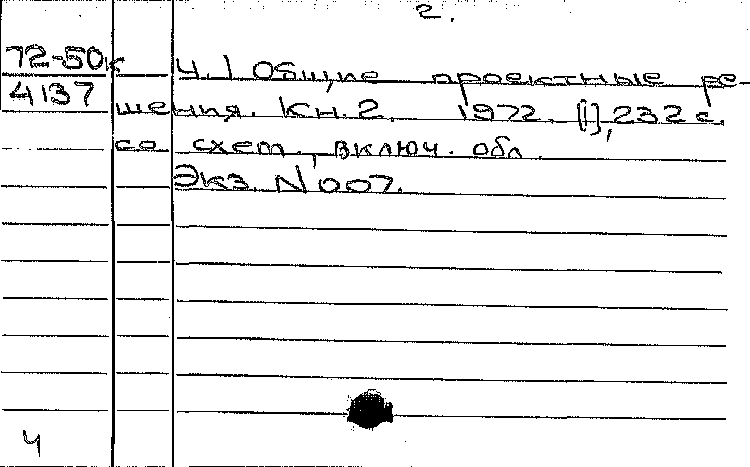 2.
72-50к
4137
Ч.1 Общие проектные ре-
шения. Кн.2. 1972. [1], 232 с.
со схем., включ. обл.
Экз. N 007.
Ч